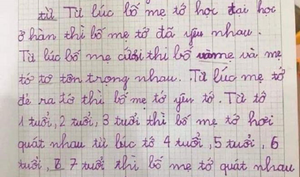 từ Từ lúc bố mẹ tớ học đại học
ở hàn thì bố mẹ tớ đã yêu nhau.
Từ lúc bố mẹ cưới thì bố và mẹ
tớ tơ tôn trọng nhau. Từ lúc mẹ tớ
đẻ ra tớ thì bố mẹ tớ yêu tớ. Từ tớ
1 tuổi, 2 tuổi, 3 tuổi thì bố mẹ tớ hơi
quát nhau từ lúc tớ 4 tuổi, 5 tuổi, 6
tuổi, 7 tuổi thì bố mẹ tớ quát nhau